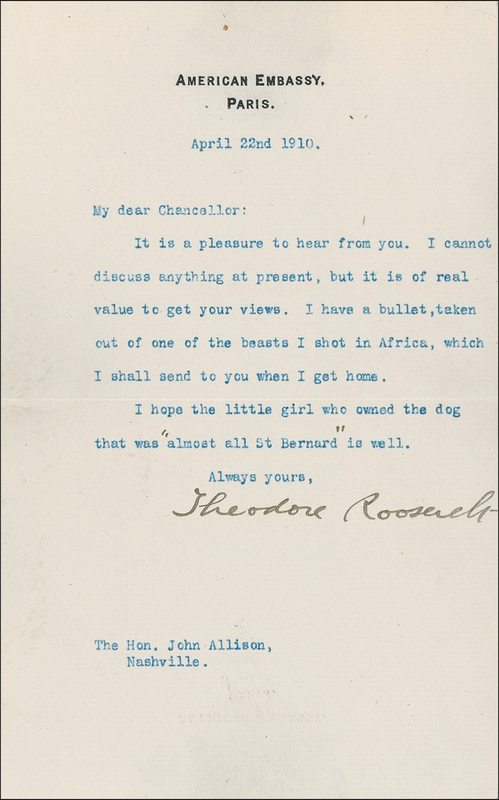 AMERICAN EMBASSY,
PARIS.
April 22nd 1910.
My dear Chancellor:
It is a pleasure to hear from you. I cannot
discuss anything at present, but it is of real
value to get your views. I have a bullet,taken
out of one of the beasts I shot in Africa, which
I shall send to you when I get home.
I hope the little girl who owned the dog
that was "almost all St Bernard" is well.
Always yours,
Theodore Roosevelt
The Hon. John Allison,
Nashville.